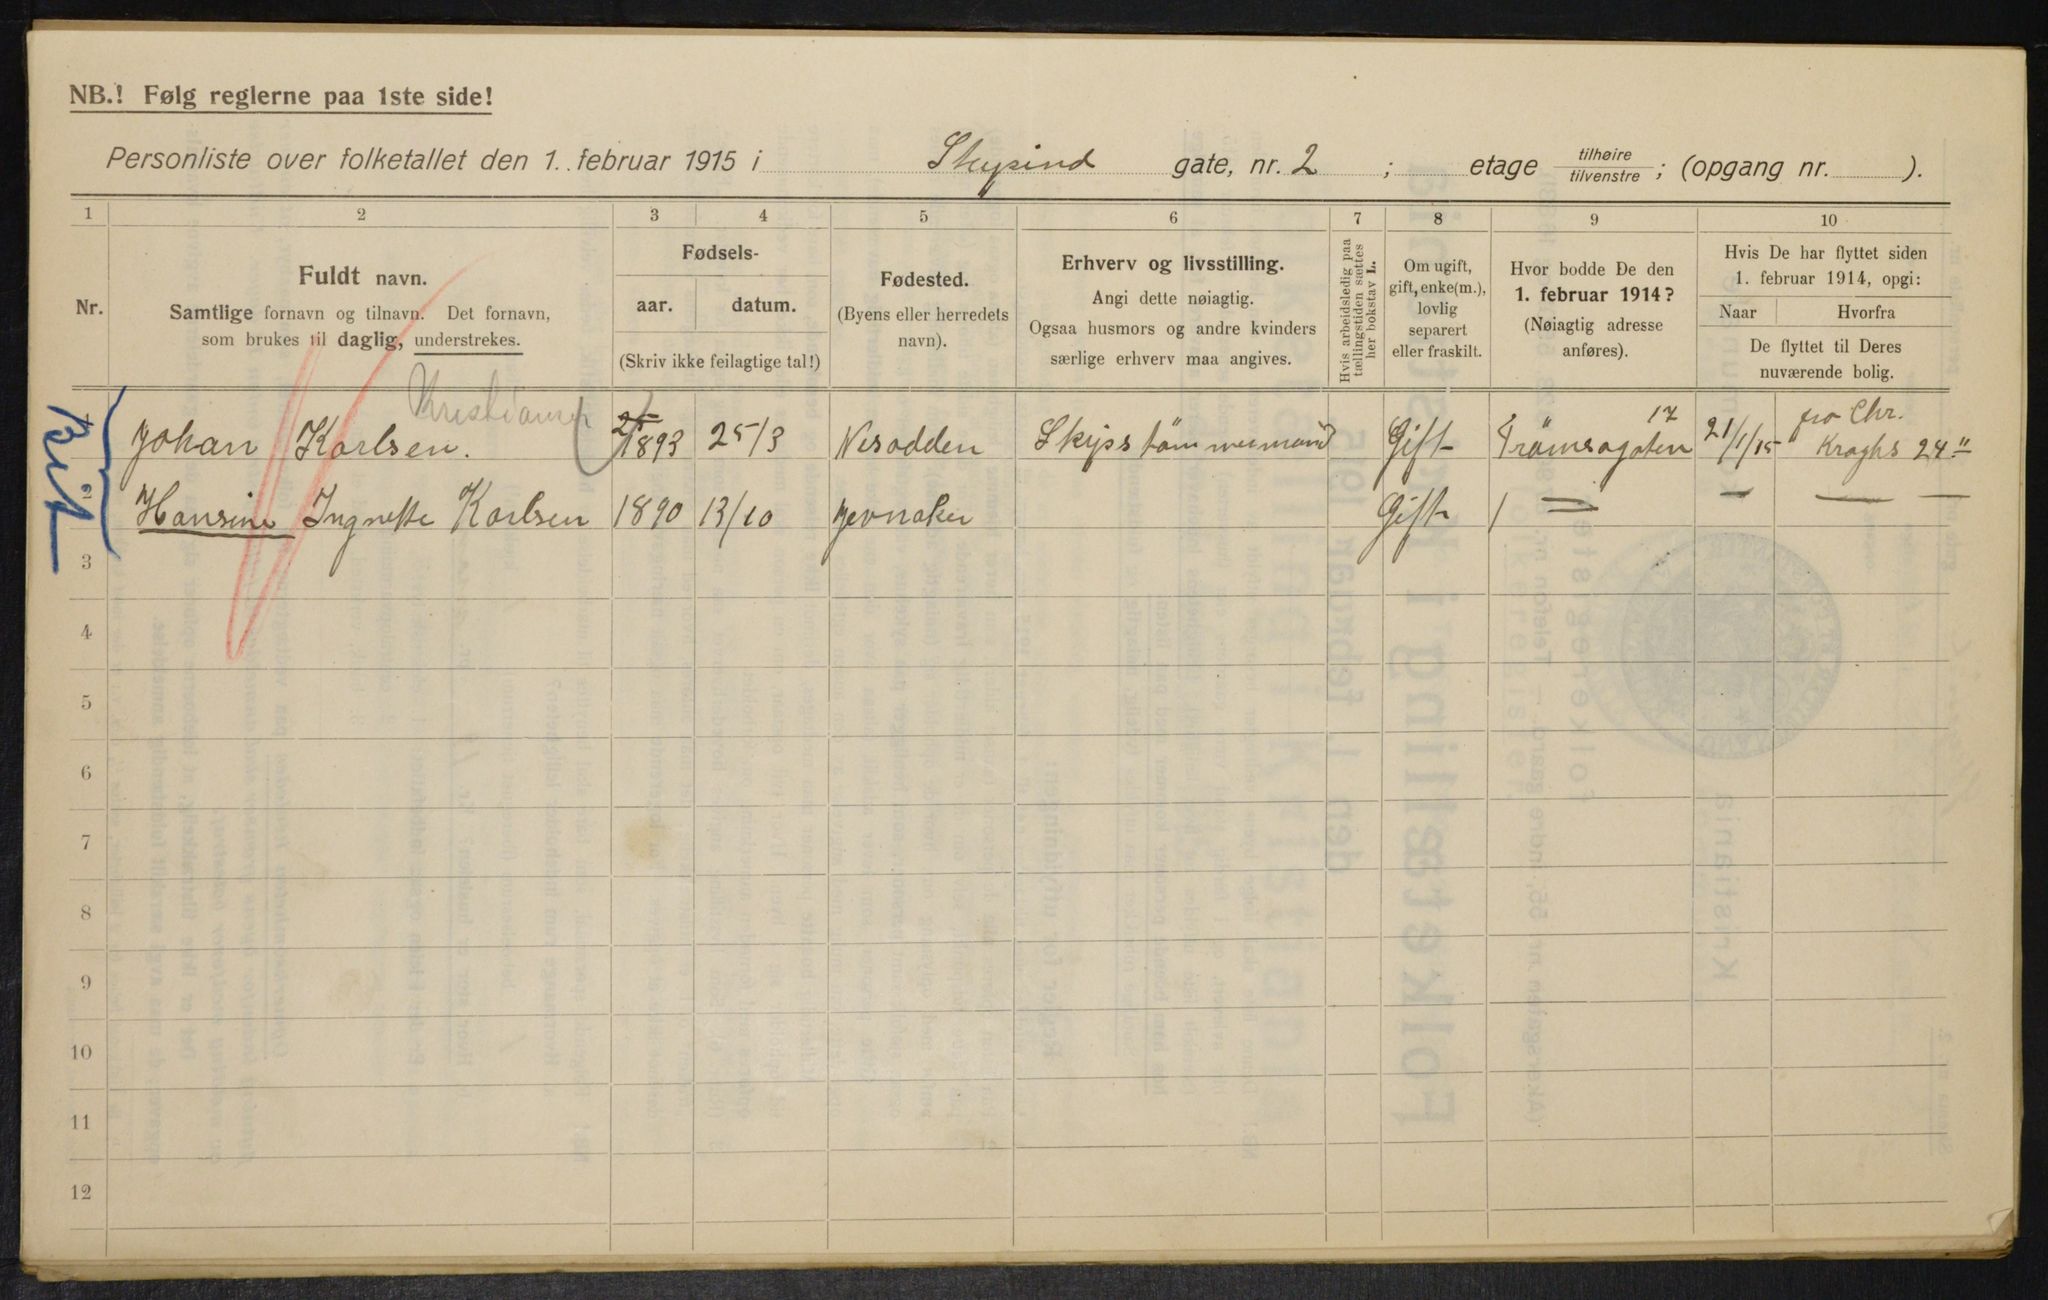 NB.! Følg reglerne paa 1ste side!
Personliste over folketallet den 1. februar 1915 i Skysind gate, nr. 2 ; etage tilhøire tilvenstre ; (opgang nr. ).
1 2 3 4 5 6 7 8 9 10
Nr.
Fuldt navn.
Samtlige fornavn og tilnavn. Det fornavn,
som brukes til daglig, understrekes.
Fødsels-
aar. datum.
(Skriv ikke feilagtige tal!)
Fødested.
(Byens eller herredets
navn).
Erhverv og livsstilling.
Angi dette nøiagtig.
Ogsaa husmors og andre kvinders
særlige erhverv maa angives.
Hvis arbeidsledig paa
tællingstiden sættes
her bokstav L.
Om ugift,
gift, enke(m.),
lovlig
separert
eller fraskilt.
Hvor bodde De den
1. februar 1914?
(Nøiagtig adresse
anføres).
Hvis De har flyttet siden
1. februar 1914, opgi:
Naar Hvorfra
De flyttet til Deres
nuværende bolig.
Kristiansen
1 Johan Karlsen. 25/1893 25/3 Nesodden Skipstömmermand Gift Trömsogaten 17 21/1/15 fra Chr. Kroghs 24"
2 Hansine Ingnette Karlsen 1890 13/10 Jevnaker Gift / = — — —
3
4
5
6
7
8
9
10
11
12